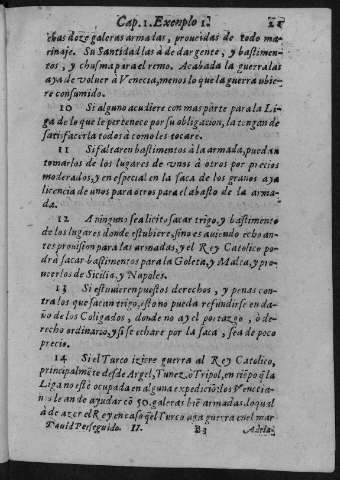 Cap. 1. Exenplo 1.
chas doze galeras armadas, proueidas de todo ma-
rinaje. Su Santidad las à de dar gente, y bastimen-
tos, y chusma para el remo. Acabada la guerra las
aya de voluer à Venecia, menos lo que la guerra ubie-
re consumido.
10 Si alguno acudiere con mas parte para la Li-
ga de lo que le pertenece por su obligacion, la tengan de
satisfacerla todos à como les tocare.
11 Si faltaren bastimentos à la armada, puedan
tomarlos de los lugares de vnos à otros por precios
moderados, y en especial en la saca de los granos aya
licencia de unos para otros para el abasto de la arma-
da.
12 A ninguno sea licito sacar trigo, y bastimento
de los lugares donde estubiere, sino es auiendo echo an-
tes prouision para las armadas, y el Rey Catolico po-
drà sacar bastimentos para la Goleta, y Malta, y pro-
ueerlos de Sicilia, y Napoles.
13 Si estuuieren puestos derechos, y penas con-
tra los que sacan trigo, esto no pueda refundirse en da-
ño de los Coligados, donde no ay el portazgo, ò de-
recho ordinario, y si se echare por la saca, sea de poco
precio.
14 Si el Turco iziere guerra al Rey Catolico,
principalmẽte desde Argel, Tunez, ò Tripol, en tiẽpo q̃ la
Liga no estè ocupada en alguna expediciõ: los Venecia-
nos le an de ayudar cõ 50. galeras biẽ armadas. lo qual
à de azer el Rey en caso q̃ el Turco aga guerra en el mar
Dauid Perseguido. II. B3 Adria-